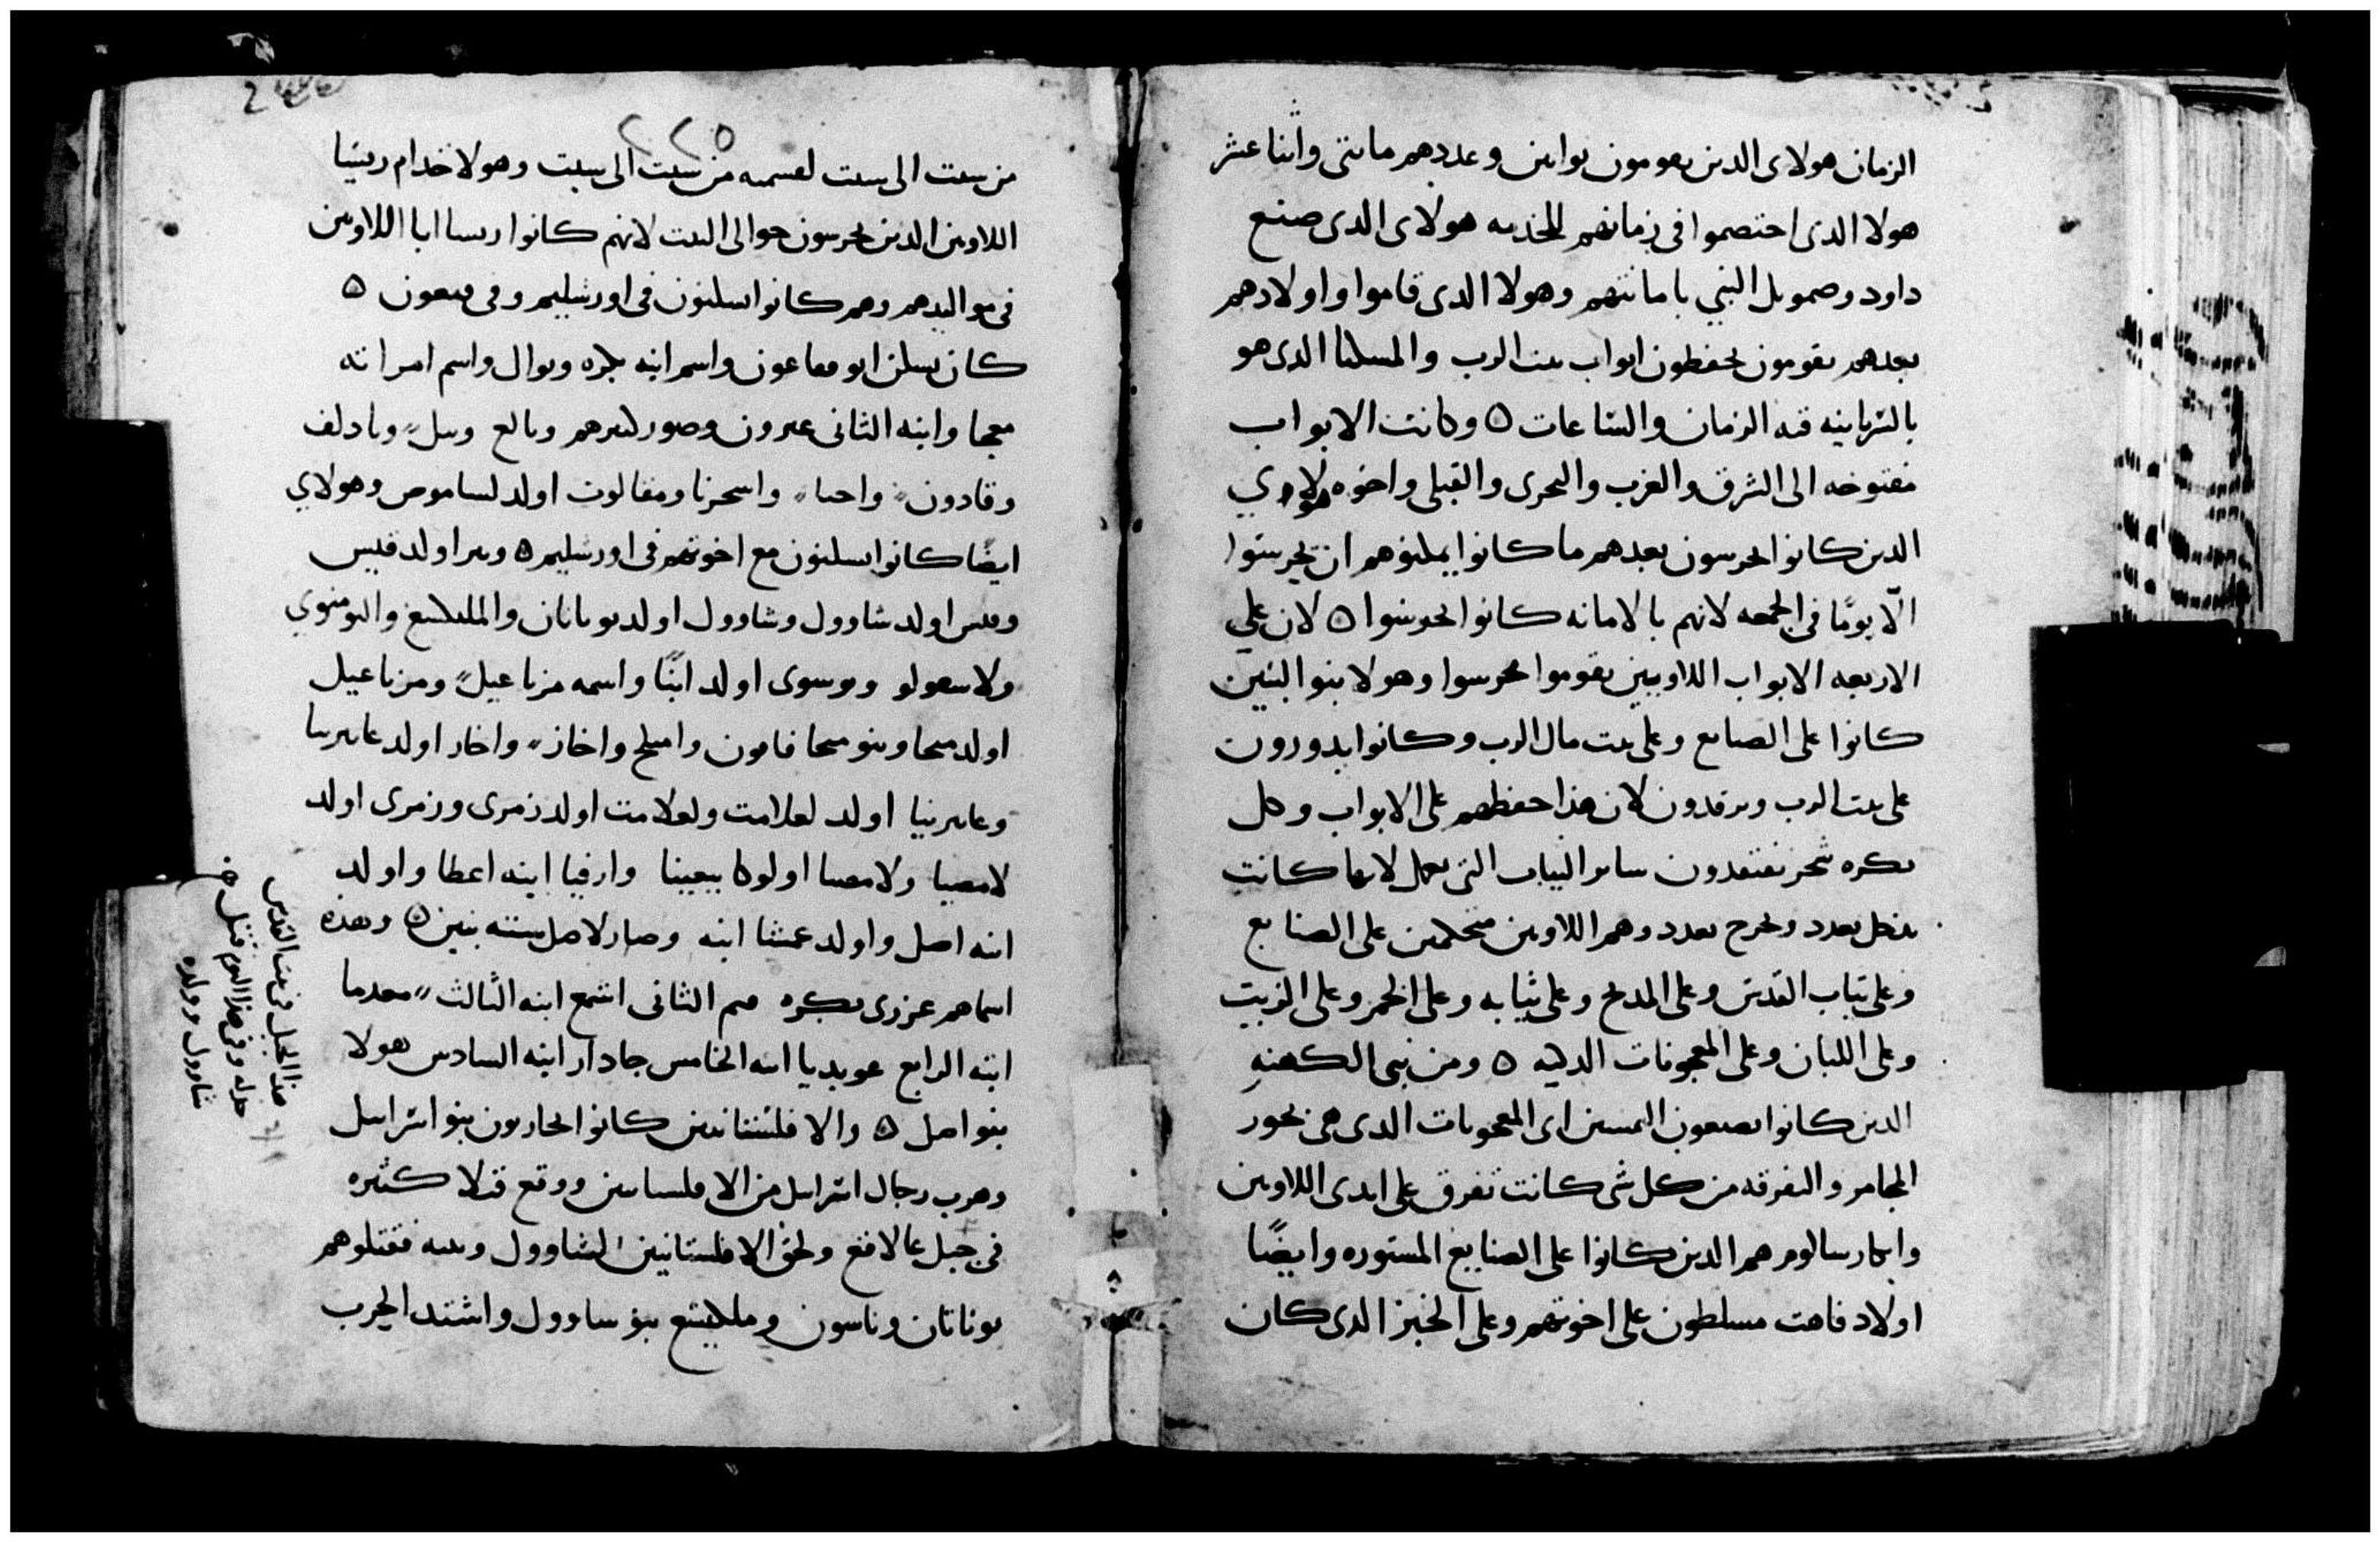 الزمان هولاى الدين يقومون بوابين وعددهم مايتى واثنا عشر
هولا الدى اختصموا فى زمانهم للخدمه هولاى الدى صنع
داود وصمويل النبي بامانتهم وهولا الدى قاموا واولادهم
بعدهم يقومون يحفظون ابواب بيت الرب والمسكنا الدى هو
بالسريانيه قبه الزمان والساعات ه وكانت الابواب
مفتوحه الى الشرق والغرب والبحرى والقبلى واخوه هولاي
الدين كانوا يحرسون بعدهم ما كانوا يمكنوهم ان يحرسوا
الّا يومًا فى الجمعه لانهم بالامانه كانوا يحرسوا ه لان علي
الاربعه الابواب اللاويين يقوموا يحرسوا وهولا بنو البنين
كانوا على الصنايع وعلى بيت مال الرب وكانوا يدورون
على بيت الرب ويرقدون لان هذا حفظهم على الابواب وكل
بكره سحر يفتقدون ساير الثياب التى تعمل لانها كانت
يدخل بعدد ويخرج بعدد وهم اللاويين متحكمين على الصنايع
وعلى ثياب القدس وعلى المدبح وعلى ثيابه وعلى الخمر وعلى الزيت
وعلى اللبان وعلى المعجونات الدكيه ه ومن بنى الكهنه
الدين كانوا يصنعون البمسين اى المعجونات الدى هى بخور
المجامر والتفرقه من كل شى كانت تفرق على ايدى اللاويين
وابكار سالوم هم الدين كانوا على الصنايع المستوره وايضًا
اولاد قاهت مسلطون على اخوتهم وعلى الخبز الدى كان
٢٢٥
من سبت الى سبت لقسمه من سبت الى سبت وهولا خدام ريسيا
اللاويين الدين يحرسون حوالى البيت لانهم كانوا ريسا ابا اللاويين
فى مواليدهم وهم كانوا يسكنون فى اورشليم وفى قبعون ه
كان يسكن ابو قعاعون واسم ابنه جره ويوال واسم امراته
معجا وابنه الثانى عبرون وصور لبيرهم وبالع وبيل وبادلف
وقادون واحيا واسحرنا ومقالوت اولد لساموص وهولاي
ايضًا كانوا يسكنون مع اخوتهم فى اورشليم ه وبير اولد قيس
وقيس اولد شاوول وشاوول اولد يوناتان والملكيسع واليومنوي
ولاسعولو ويوسوى اولد ابنًا واسمه مزباعيل ومزباعيل
اولد ميخا وبنو ميخا فامون وامبلح واخاز واخاز اولد عابيرينا
وعابيرنيا اولد لعلامت ولعلامت اولد زمرى وزمرى اولد
لامصيا ولامصيا اولوكا بيعينا وارفيا ابنه اعطا واولد
ابنه اصل واولد عشا ابنه وصار لاصل سته بنين ه وهذه
اسماهم عزرى بكره ميم الثانى اشمع ابنه الثالث معدما
ابنه الرابع عوبديا ابنه الخامس جادار ابنه السادس هولا
بنو اصل ه والافلستانيين كانوا يحاربون بنو اسراييل
وهرب رجال اسراييل من الافلستانيين ووقع قتلا كثيره
فى جبل عالافع ولحق الافلستانيين لشاوول وبنيه فقتلوهم
يوناتان وناسون وملكيشع بنو ساوول واشتد الحرب
هذا الجبل فى بيت القدس
وفى هذا اليوم قتل
شاوول وولده